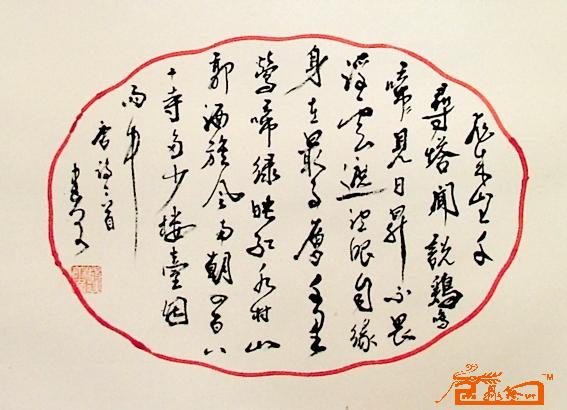 飛來山上千
尋塔聞說鷄鳴
啼見日昇不畏
浮雲遮望眼自緣
身在最高層千里
鶯啼綠映紅水村山
郭酒旗風南朝四百八
十寺多少樓臺烟
雨中
唐詩二首